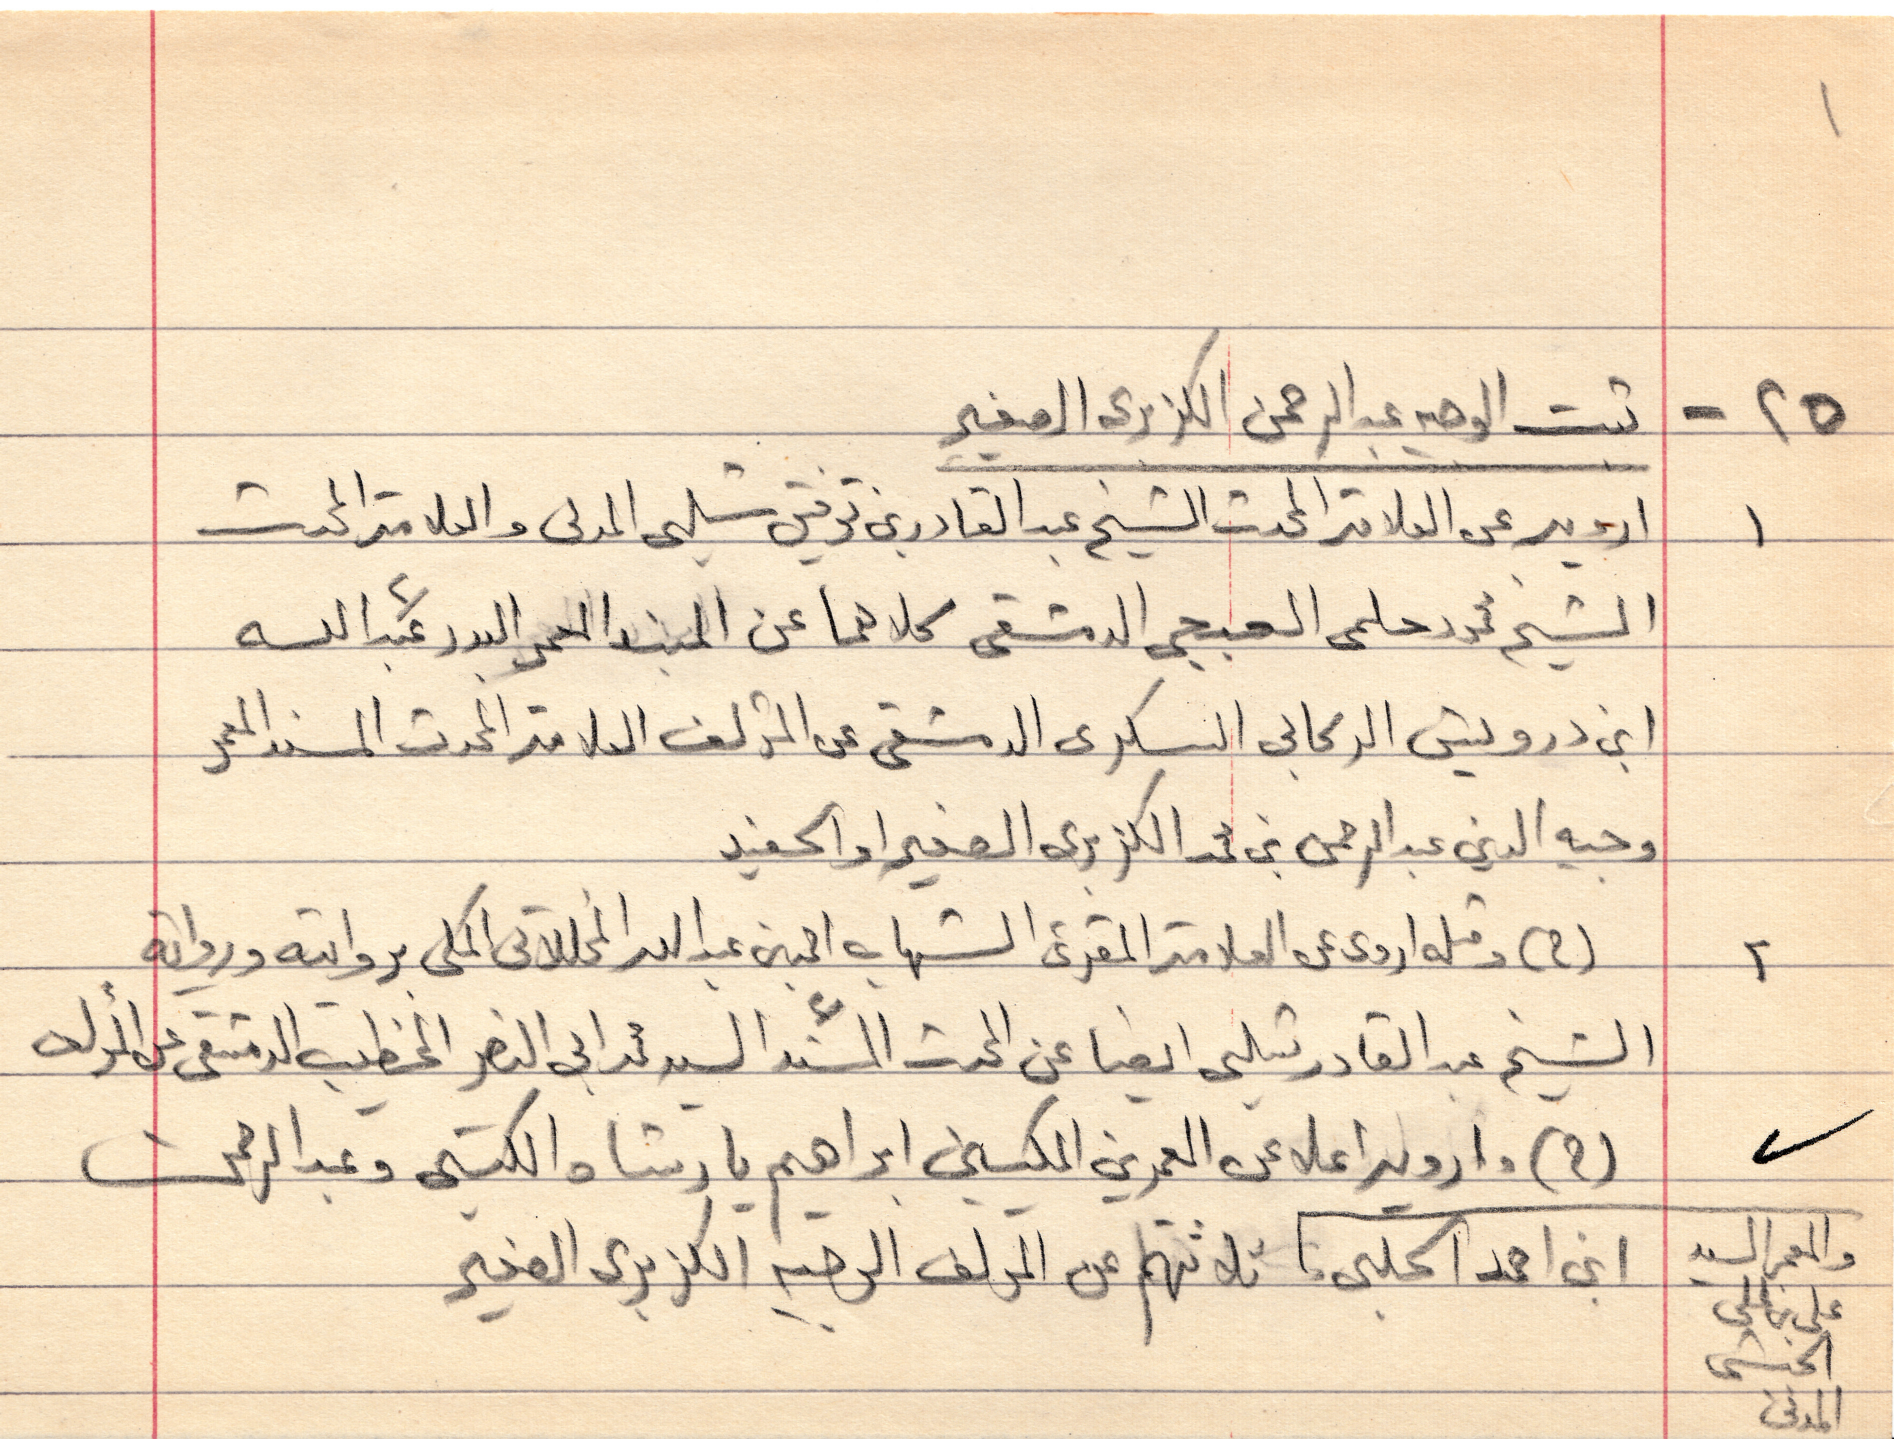 ١
٢٥ - ثبت الوجيه عبد الرحمن الكزبرى الصغير
١ ارويه عن العلامة المحدث الشيخ عبد القادر بن توفيق شلبى المدنى والعلامة المحدث
الشيخ محمود حلمى الصبحى الدمشقى كلاهما عن المسند المعمر البدر عبد الله
ابن درويش الركابي السكرى الدمشقى عن المؤلف العلامة المحدث المسند المعمر
وجيه الدين عبد الرحمن بن محمد الكزبرى الصغير او الحفيد
٢ (ح) ومثله اروى عن العلامة المقرئ الشهاب احمد بن عبد الله المخللاتى المكى بروايته ورواية
الشيخ عبد القادر شلبى ايضا عن المحدث المسند السيد محمد ابى النصر الخطيب الدمشقى عن المؤلف
(ح) وارويه اعلا عن المعمرين المكيين ابراهيم يارشاه الكتبى وعبد الرحمن
ابن احمد الحلبى ثلاثتهم عن المؤلف الوجيه الكزبرى الصغير
والمعمر السيد
على بن على
الحبشى
المدنى